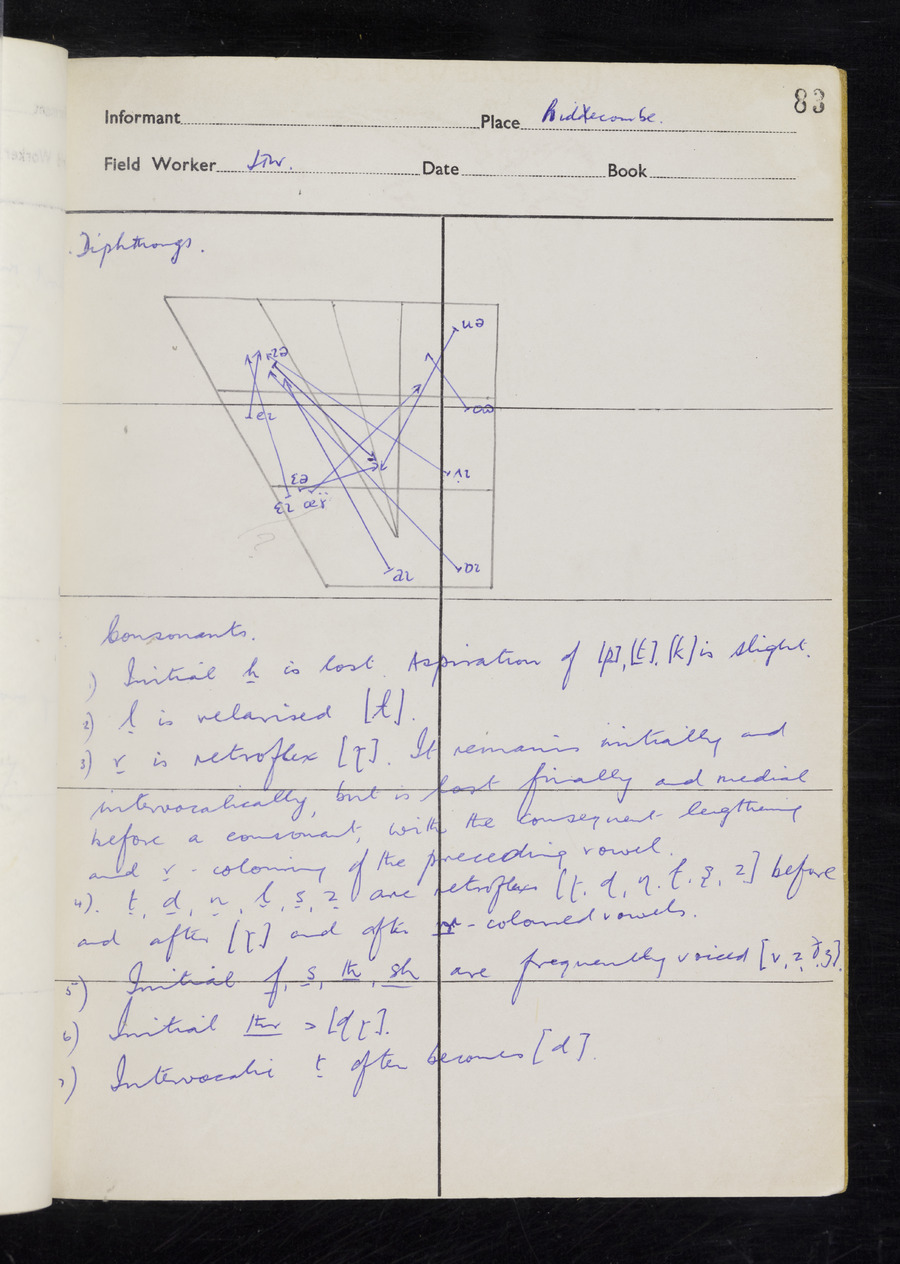 83
Informant
Place Kidlecombe.
Field Worker Date Book
Diphthongs.
Consonants.
1) Initial h is lost. Aspiration of [p], [t], [k] is slight.
2) l is velarised [ɫ].
3) r is retroflex [ɽ]. It remains initially and
intervocalically, but is lost finally and medial
before a consonant, with the consequent lengthening
and r-colouring of the preceding vowel.
4). t, d, n, l, s, z are retroflex [ʈ, ɖ, ɳ, ɭ, ʂ, ʐ] before
and after [ɽ] and after r-coloured vowels.
5) Initial f, s, th, sh are frequently voiced [v, z, ð, ʒ].
6) Initial thr > [dɽ].
7) Intervocalic t often becomes [d].